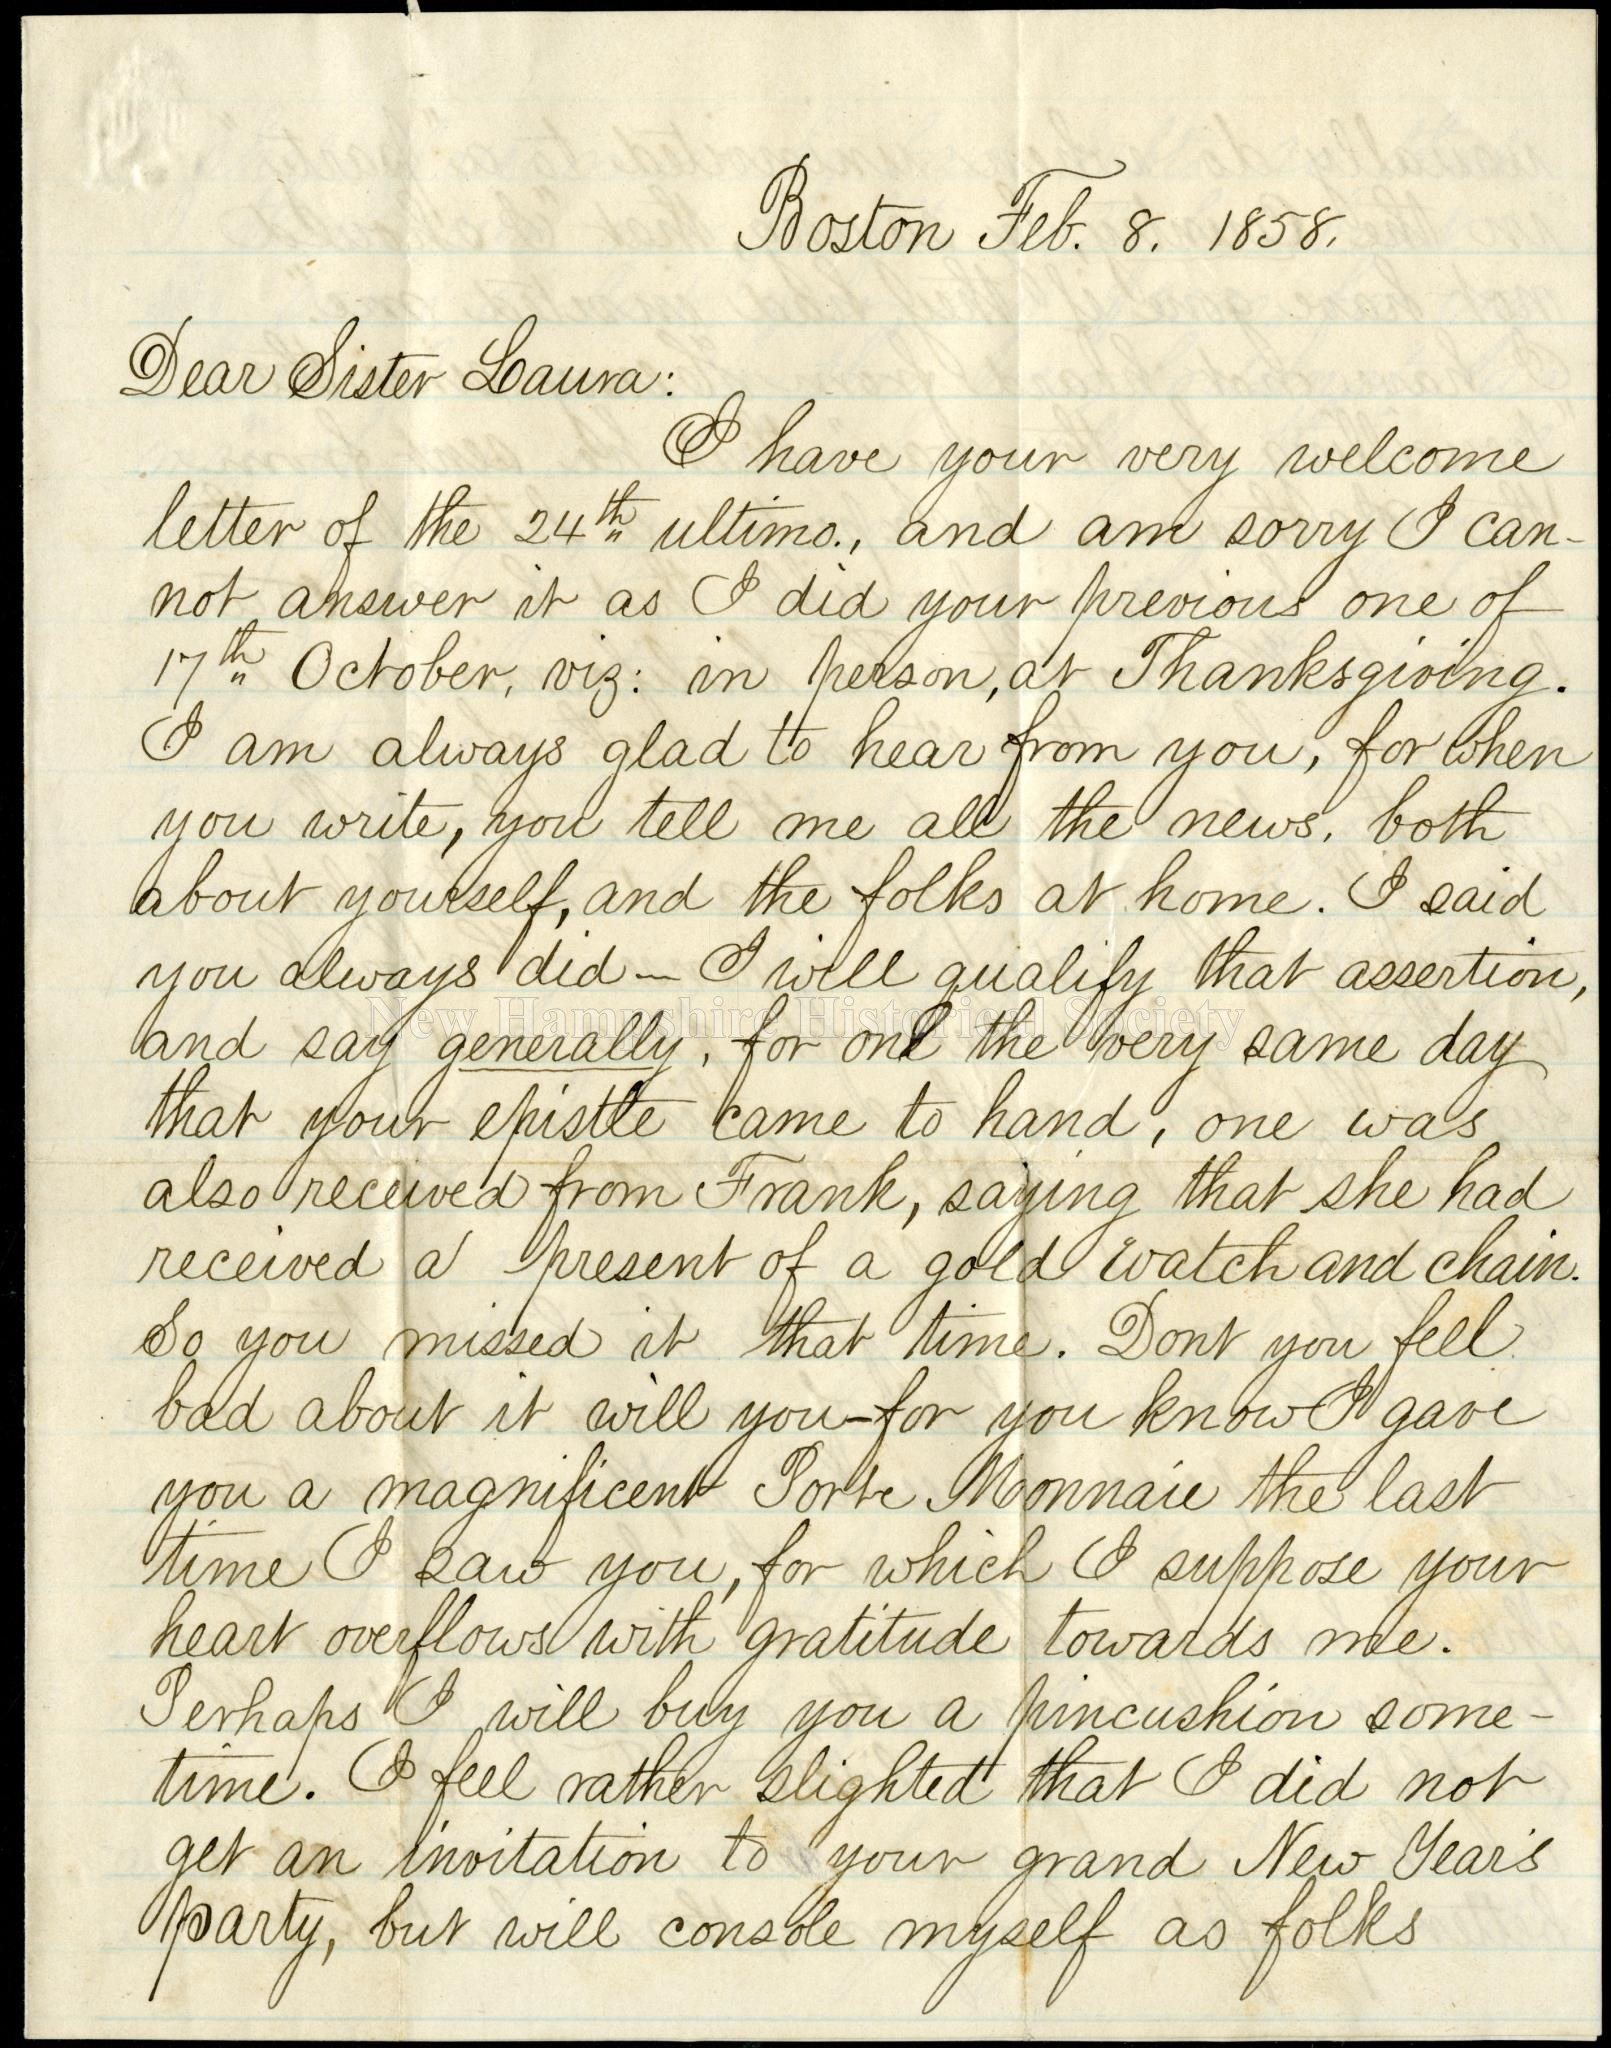 Boston Feb. 8. 1858.
Dear Sister Laura:
I have your very welcome
letter of the 24th ultimo., and am sorry I can-
not answer it as I did your previous one of
17th October, viz: in person, at Thanksgiving.
I am always glad to hear from you, for when
you write, you tell me all the news, both
about yourself, and the folks at home. I said
you always did — I will qualify that assertion,
and say generally, for on the very same day
that your epistle came to hand, one was
also received from Frank, saying that she had
received a present of a gold watch and chain.
So you missed it that time. Dont you feel
bad about it will you – for you know I gave
you a magnificent Porte Monnaie the last
time I saw you, for which I suppose your
heart overflows with gratitude towards me.
Perhaps I will buy you a pincushion some-
time. I feel rather slighted that I did not
get an invitation to your grand New Year's
party, but will console myself as folks
New Hampshire Historical Society